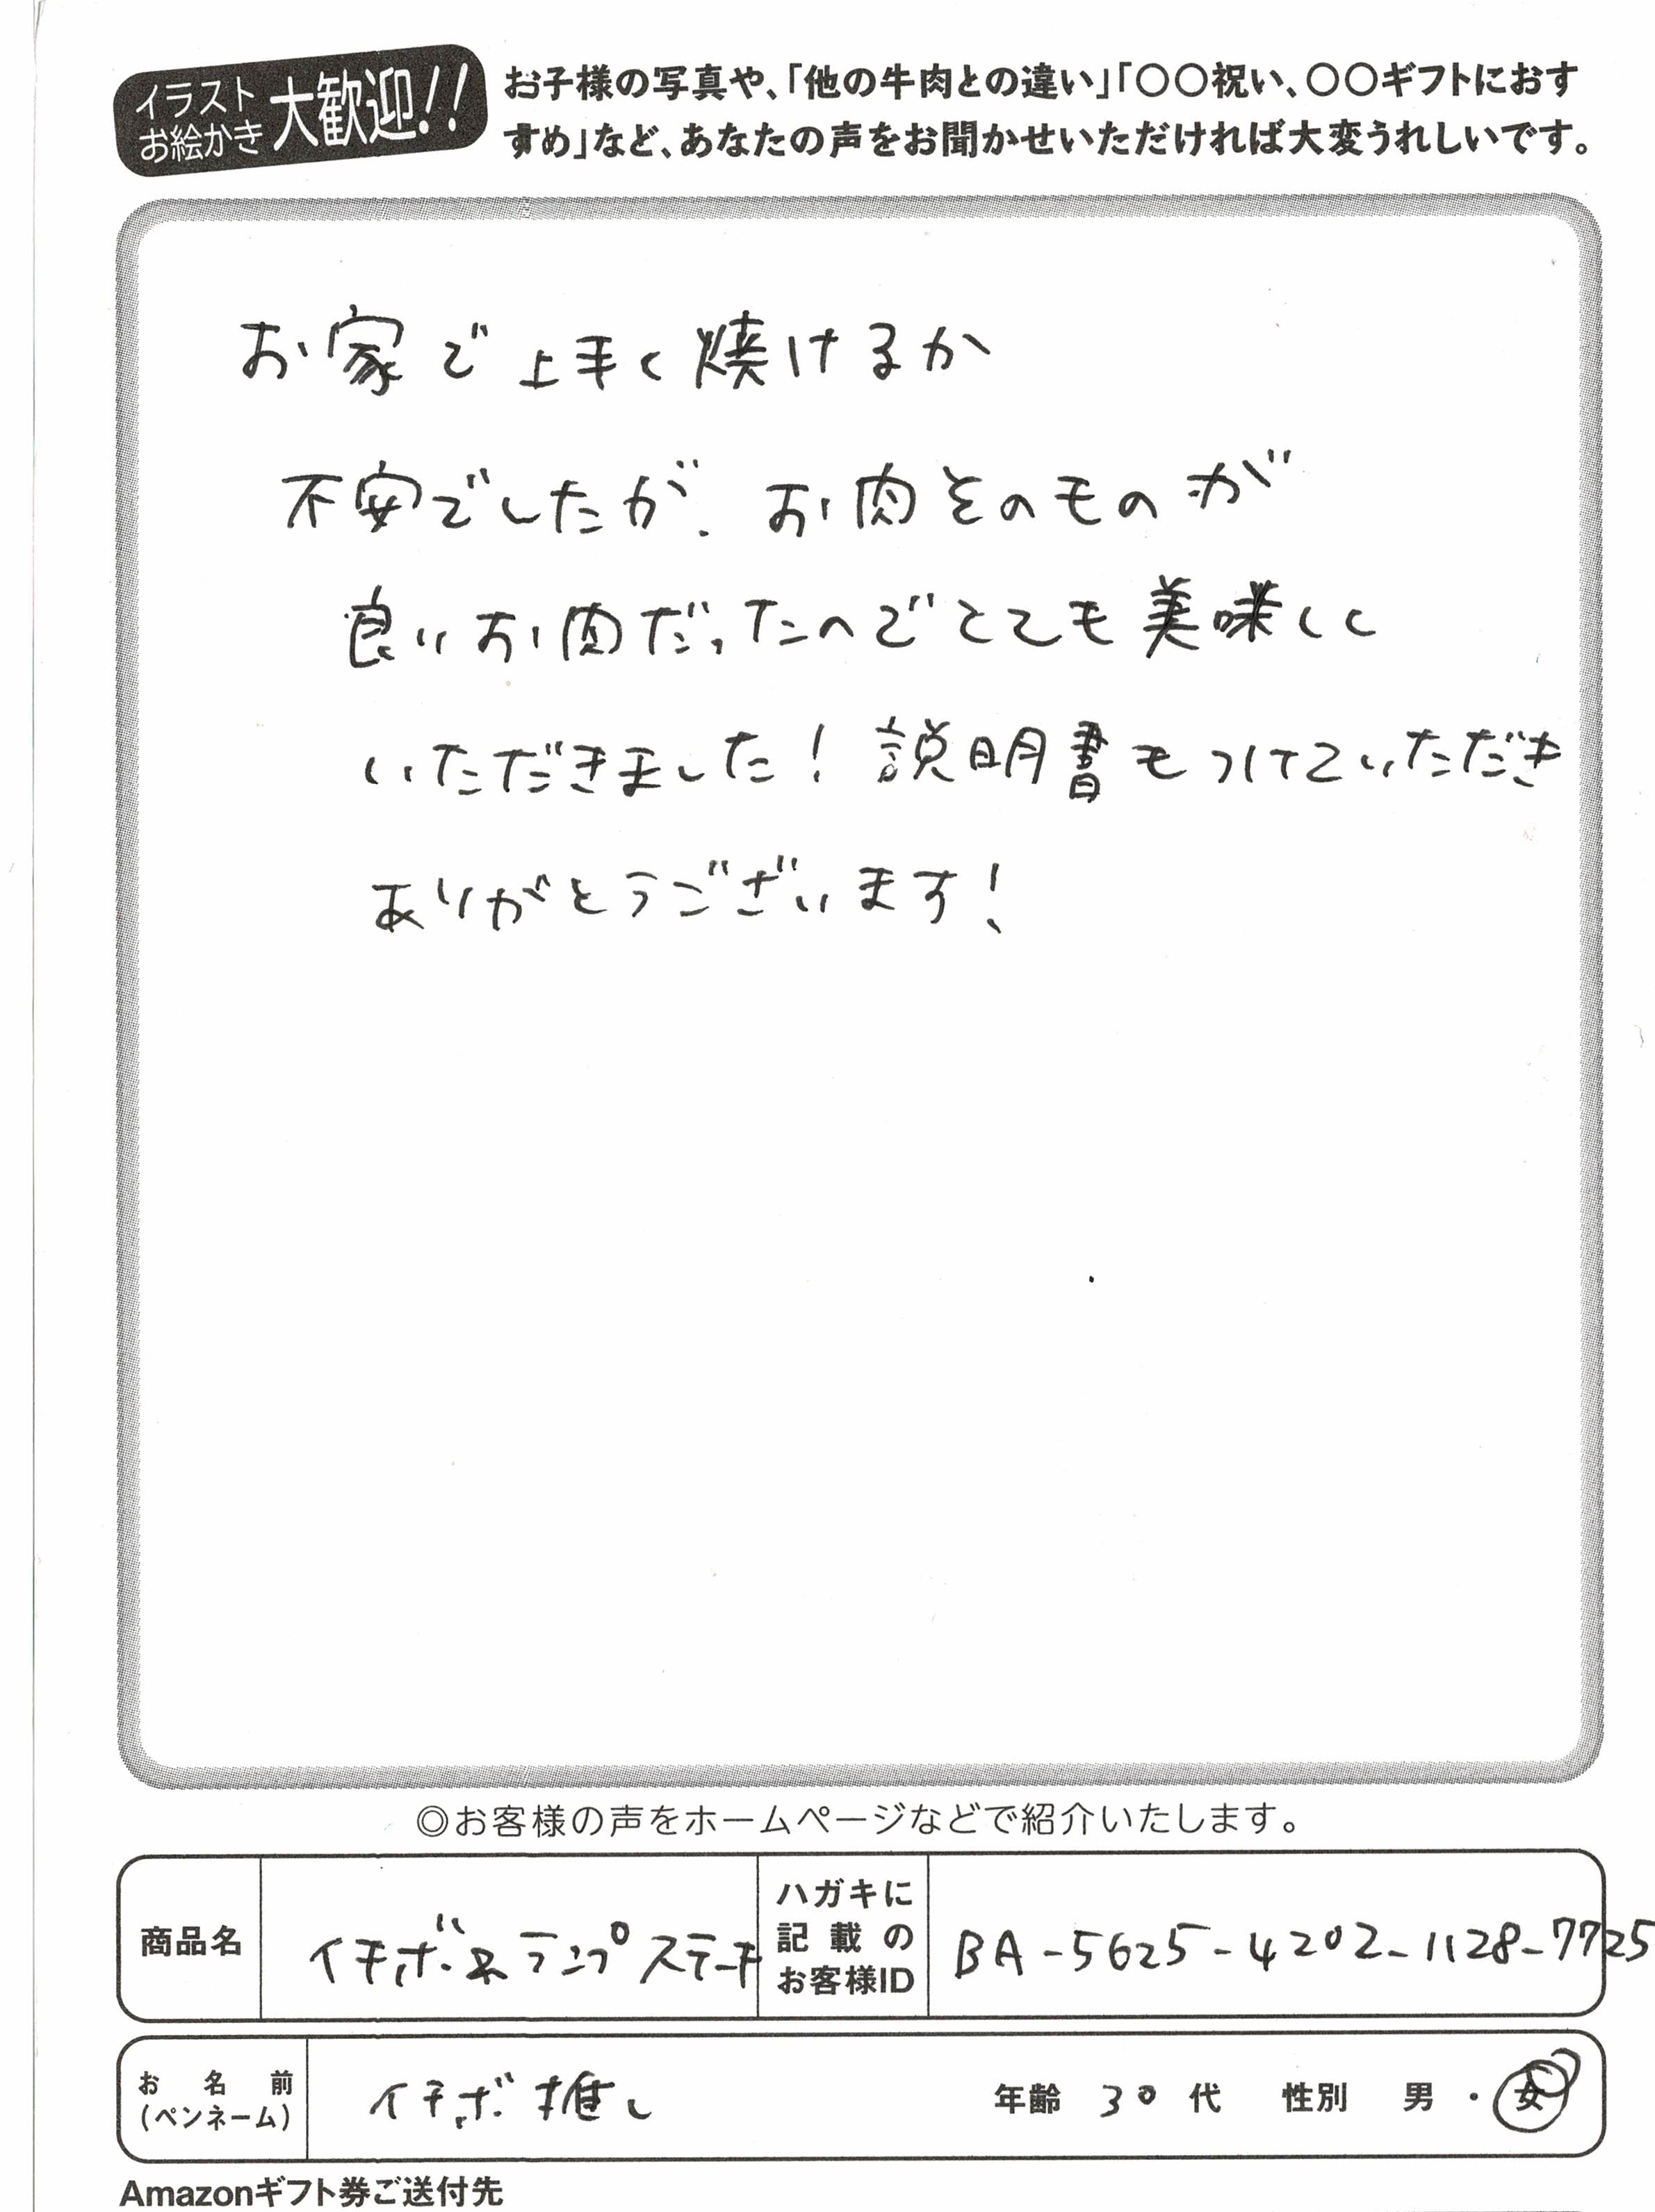 イラスト
お絵かき
大歓迎!!
お子様の写真や、「他の牛肉との違い」「〇〇祝い、〇〇ギフトにおす
すめ」など、あなたの声をお聞かせいただければ大変うれしいです。
お家で上手く焼けるか
不安でしたが、お肉そのものが
良いお肉だったのでとても美味しく
いただきました！説明書もつけていただき
ありがとうございます！
◎お客様の声をホームページなどで紹介いたします。
商品名
イチボ&ランプステーキ
ハガキに
記載の
お客様ID
BA-5625-4202-1128-7725
お名前
(ペンネーム)
イチボ推し
年齢 30 代 性別 男・女
Amazonギフト券ご送付先